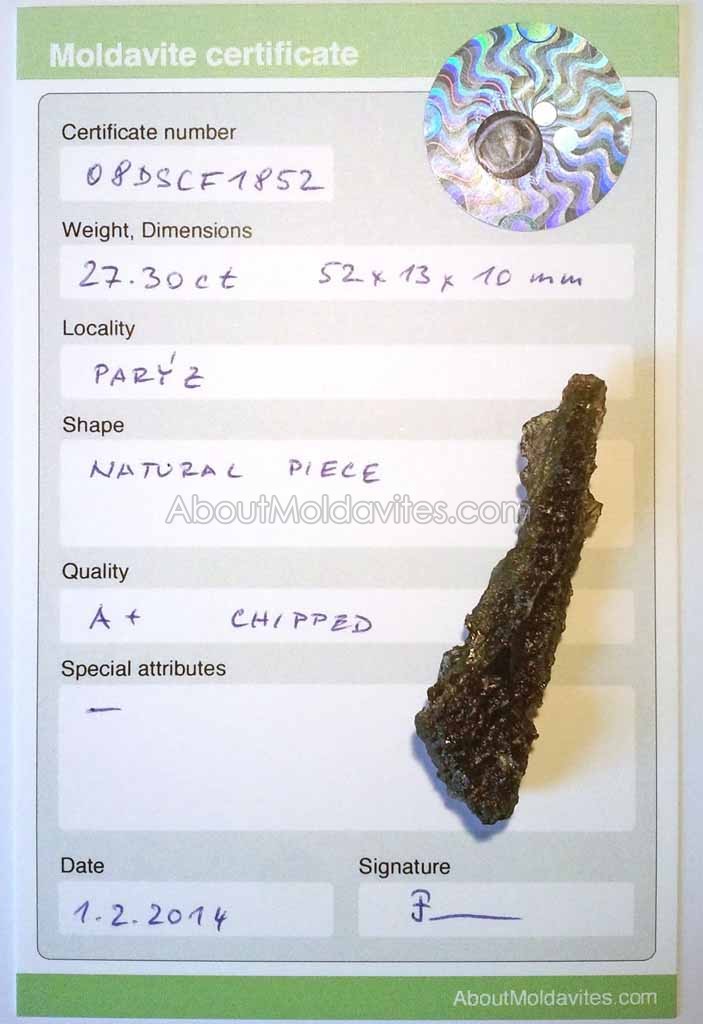 Moldavite certificate
Certificate number
08DSCF1852
Weight, Dimensions
27.30ct 52 x 13 x 10 mm
Locality
PARÝZ
Shape
NATURAL PIECE
AboutMoldavites.com
Quality
A+ CHIPPED
Special attributes
—
Date Signature
1.2.2014
AboutMoldavites.com